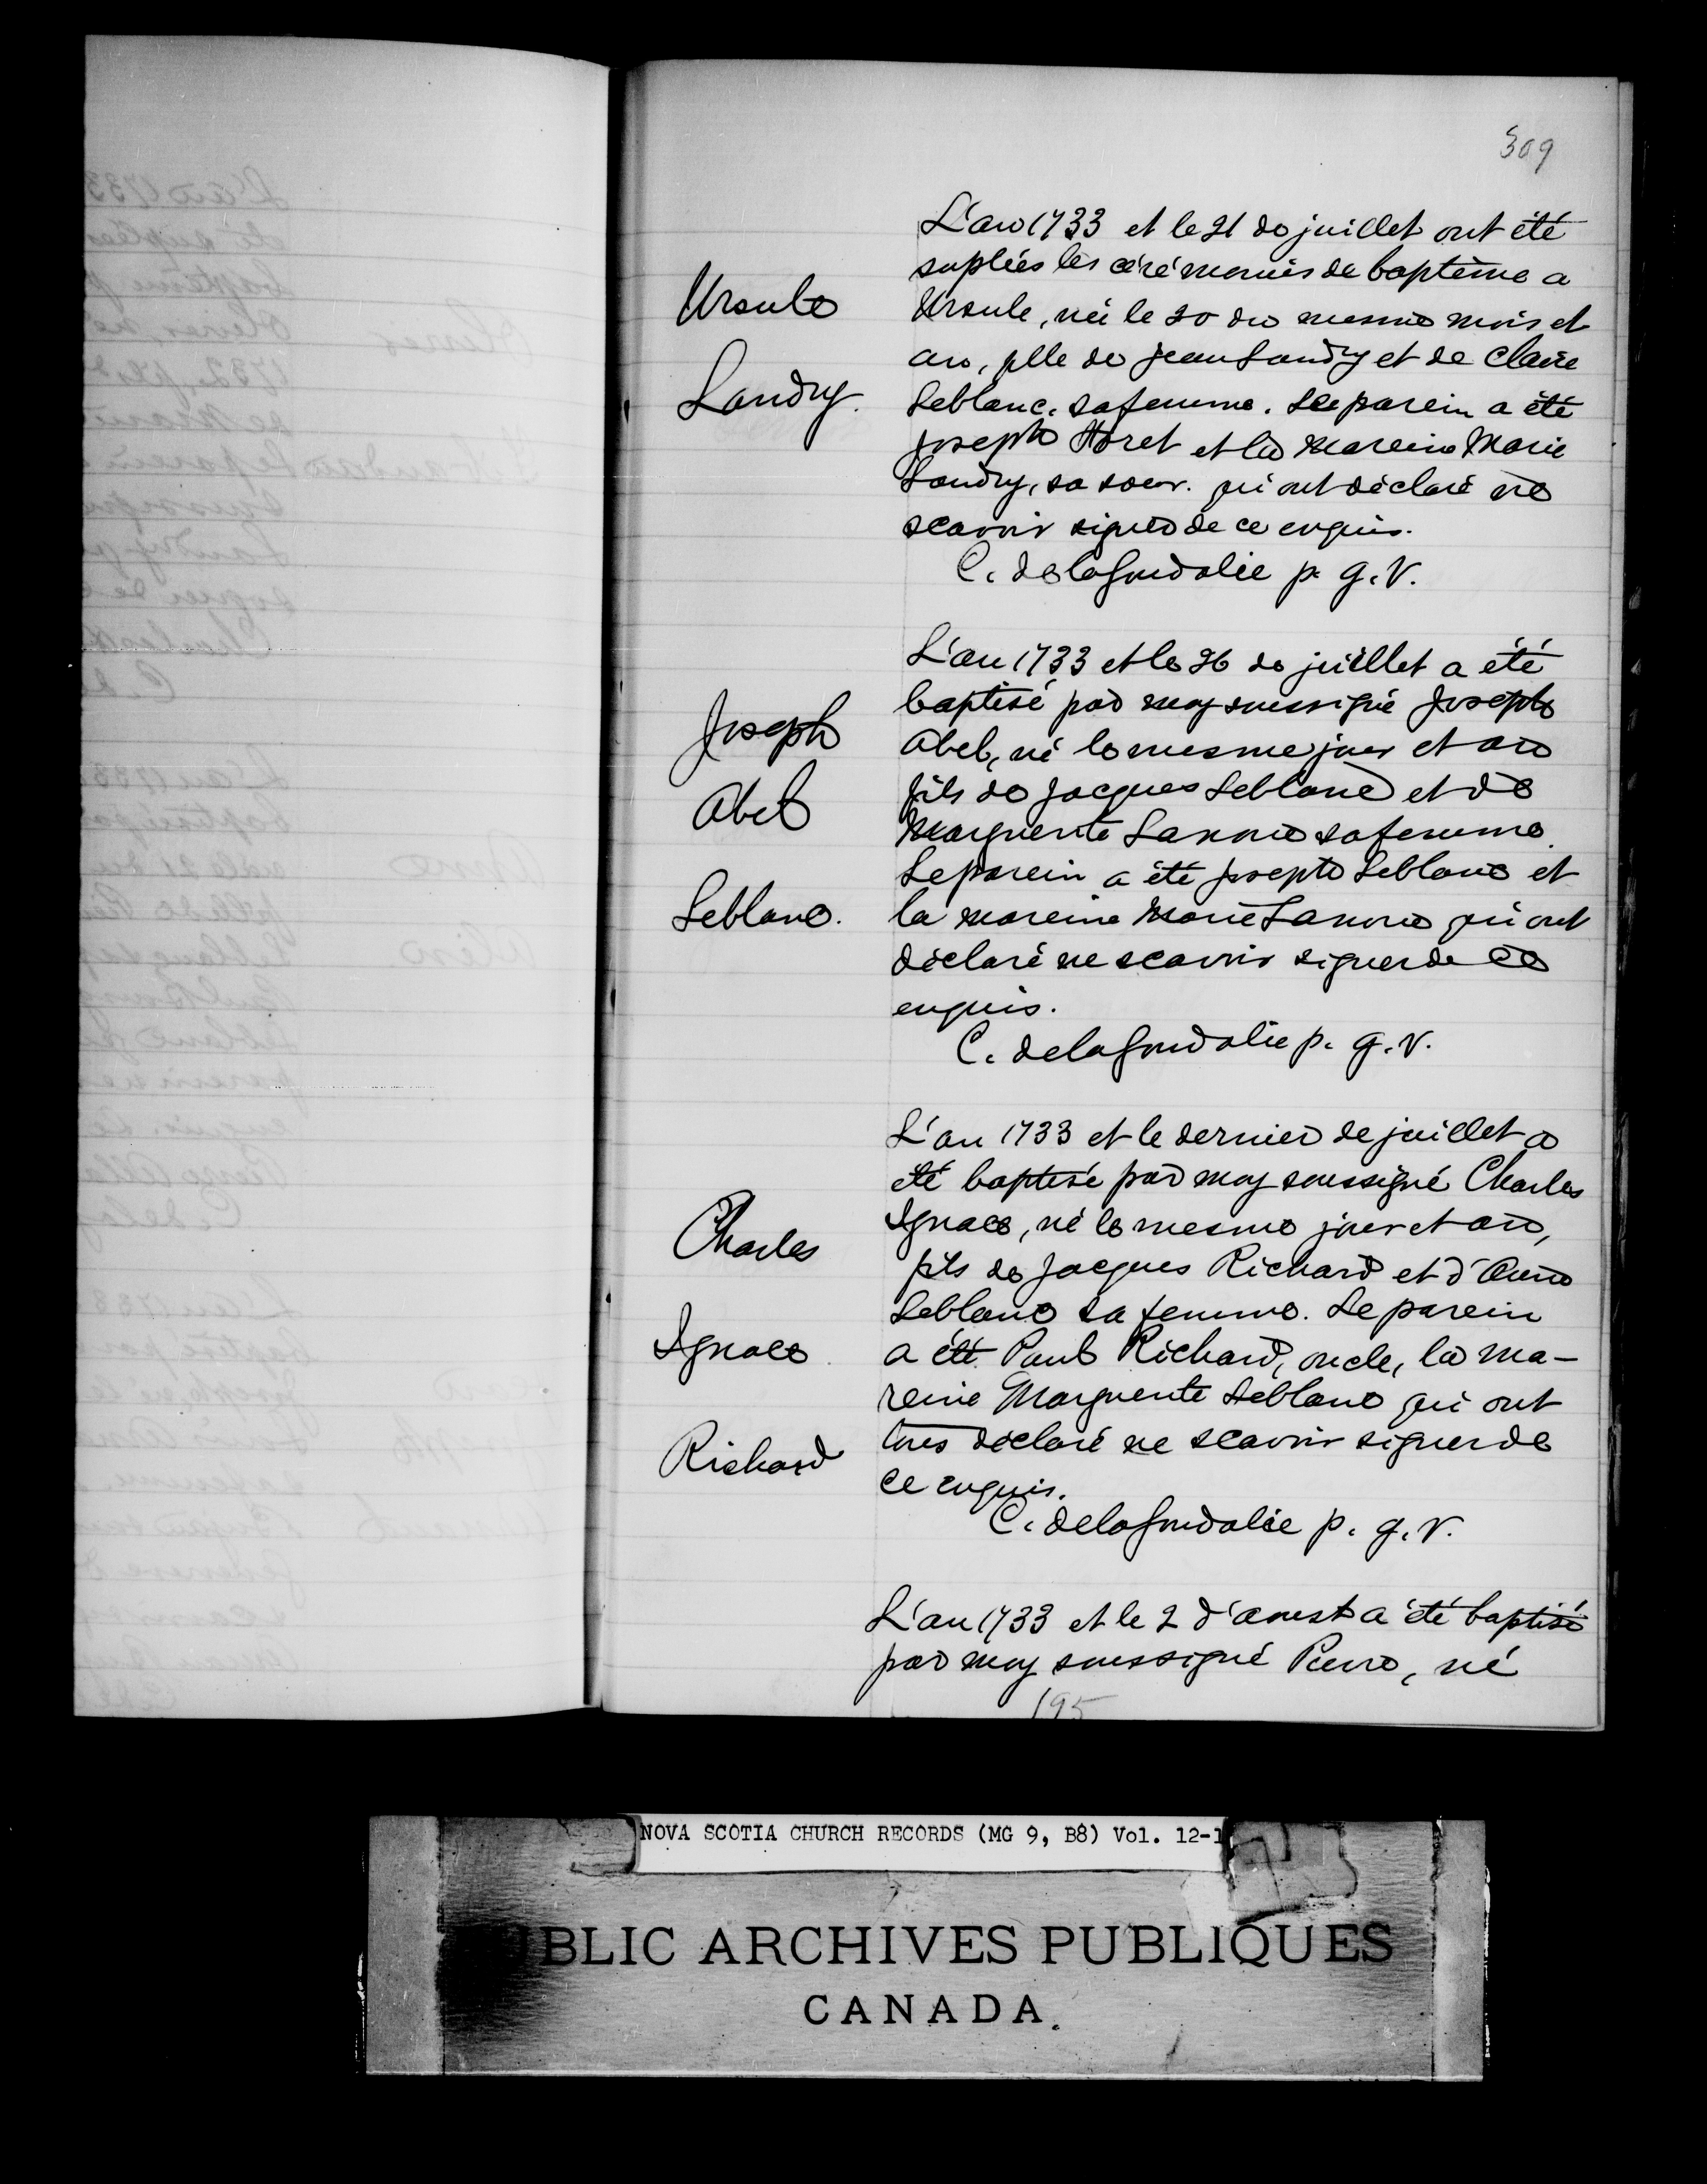 309
L'an 1733 et le 21 de juillet ont été
supléés les cérémonies de baptême a
Ursule
Ursule, née le 20 du mesme mois et
an, fille de Jean Landry et de Claire
Landry.
Leblanc, sa femme. Le parein a été
Joseph et la mareine Marie
Landry, sa soeur. qui ont déclaré ne
scavoir signer de ce enquis.
C. delagoudalie p. g. v.
L'an 1733 et le 26 de juillet a été
baptisé par moy soussigné Joseph
Joseph
Abel, né le mesme jour et an
Abel
fils de Jacques Leblanc et de
Marguerite Lanoue sa femme.
Le parein a été Joseph Leblanc et
Leblanc.
la mareine Marie Lanoue qui ont
déclaré ne scavoir signer de ce
enquis.
C. delagoudalie p. g. v.
L'an 1733 et le dernier de juillet a
été baptisé par moy soussigné Charles
Charles
Ignace, né le mesme jour et an,
fils de Jacques Richard et d'Anne
Leblanc sa femme. Le parein
Ignace
a été Paul Richard, oncle, la ma-
reine Marguerite Leblanc qui ont
Richard
tous déclaré ne scavoir signer de
ce enquis.
C. delagoudalie p. g. v.
L'an 1733 et le 2 d'aoust a été baptisé
par moy soussigné Pierre, né
195
NOVA SCOTIA CHURCH RECORDS (MG 9, B8) Vol. 12-1
BLIC ARCHIVES PUBLIQUES
CANADA.